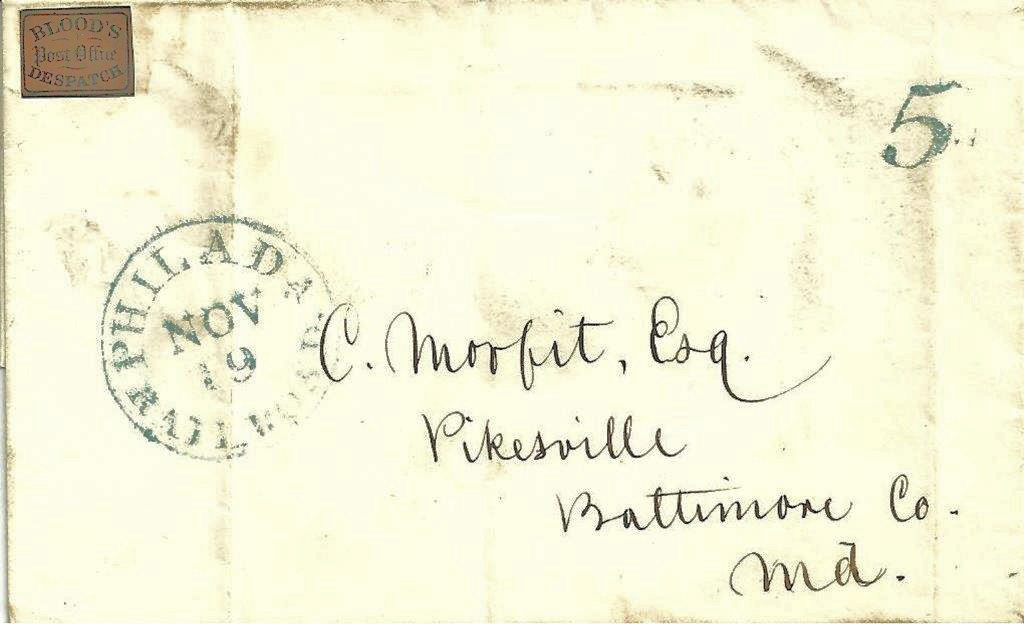 BLOOD'S
Post Office
DESPATCH
5
PHILADA
NOV
19
RAILROAD
C. Morfit, Esq.
Pikesville
Baltimore Co.
Md.